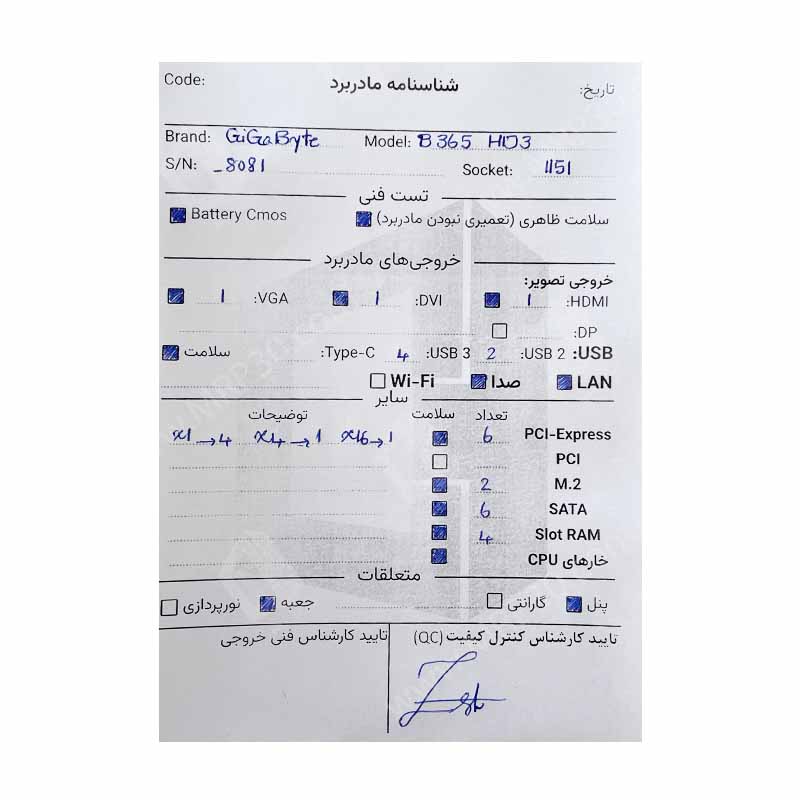 تاریخ: شناسنامه مادربرد Code:
Brand: GiGaByte Model: B365 HD3
S/N: _8081 Socket: 1151
تست فنی
سلامت ظاهری (تعمیری نبودن مادربرد) Battery Cmos
خروجی‌های مادربرد
خروجی تصویر:
HDMI: 1 DVI: 1 VGA: 1
DP:
USB: USB 2: 2 USB 3: 4 Type-C: سلامت
LAN صدا Wi-Fi
سایر
تعداد سلامت توضیحات
PCI-Express 6 x16→1 x4→1 x1→4
PCI
M.2 2
SATA 6
Slot RAM 4
خارهای CPU
متعلقات
پنل گارانتی جعبه نورپردازی
تایید کارشناس کنترل کیفیت (QC) تایید کارشناس فنی خروجی